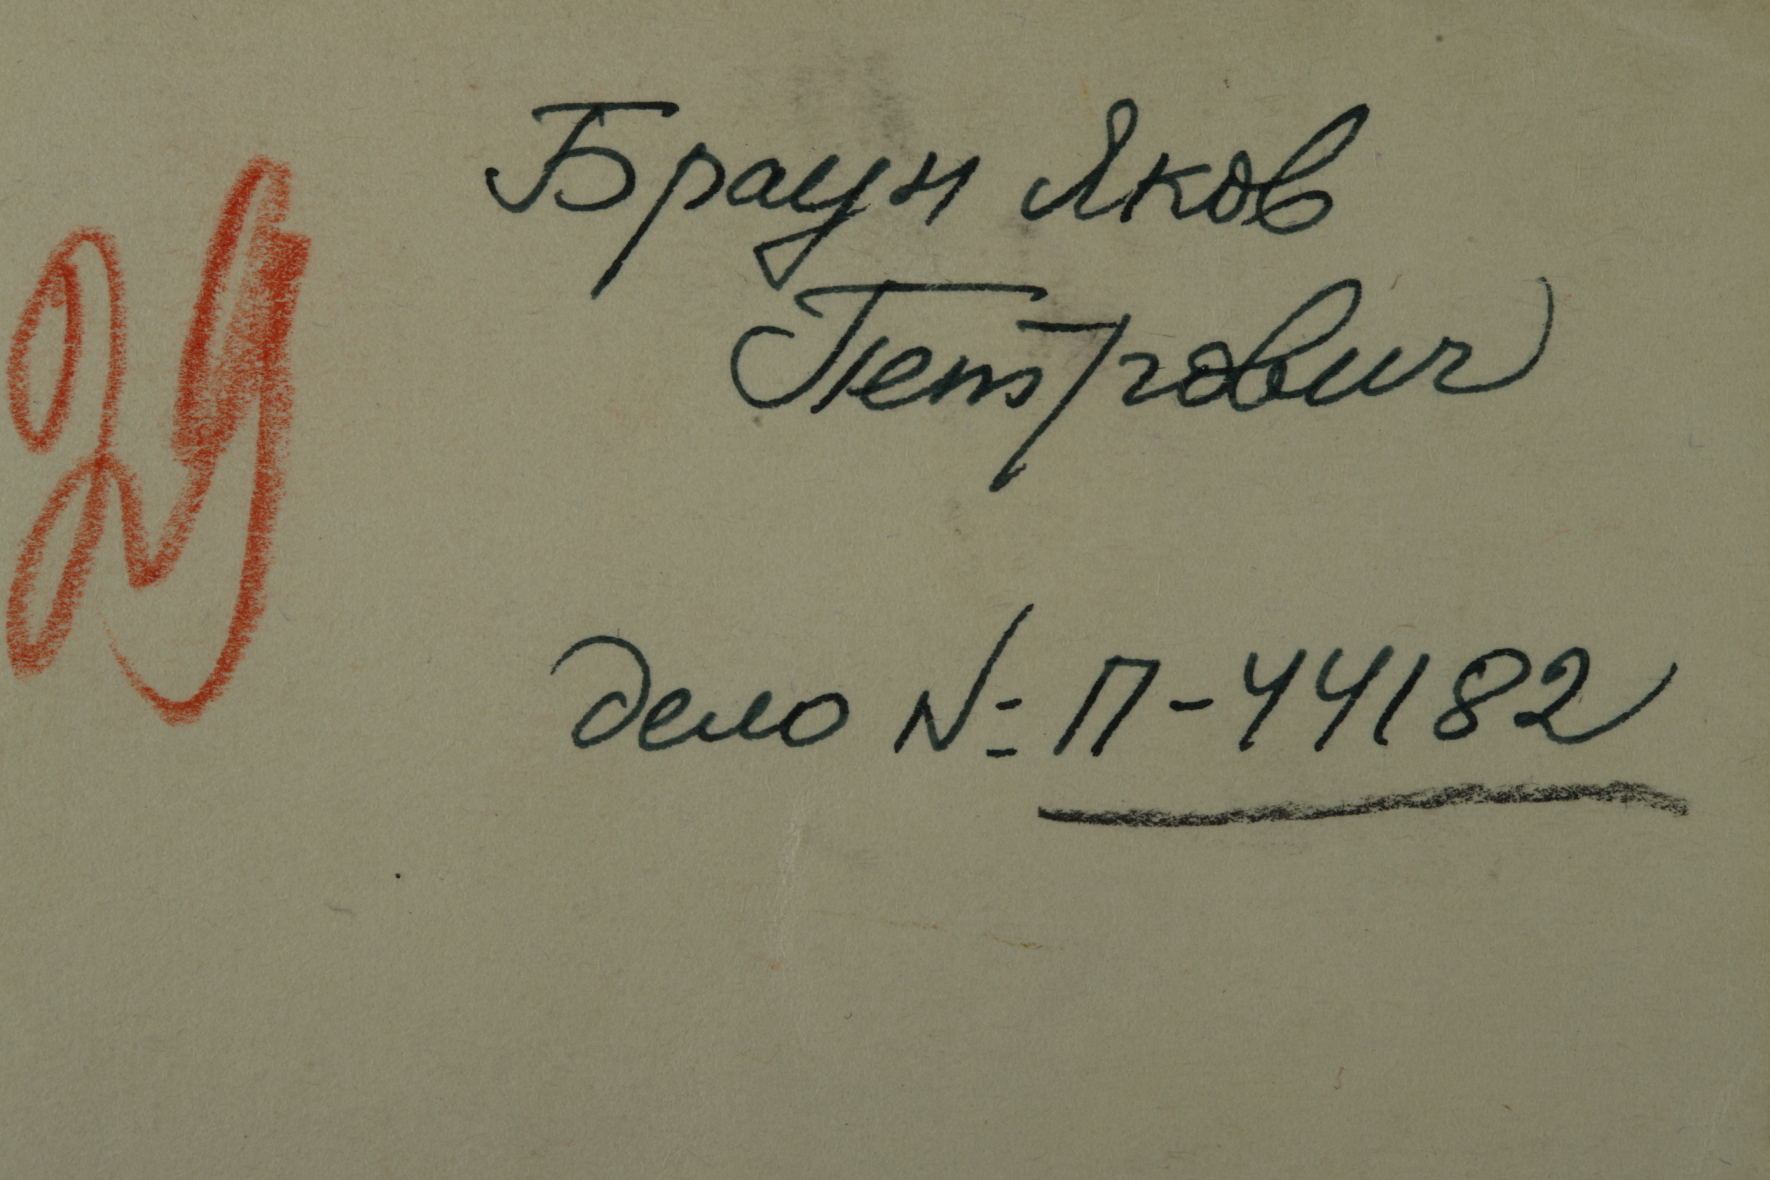 29
Браун Яков
Петрович
дело № П-44182